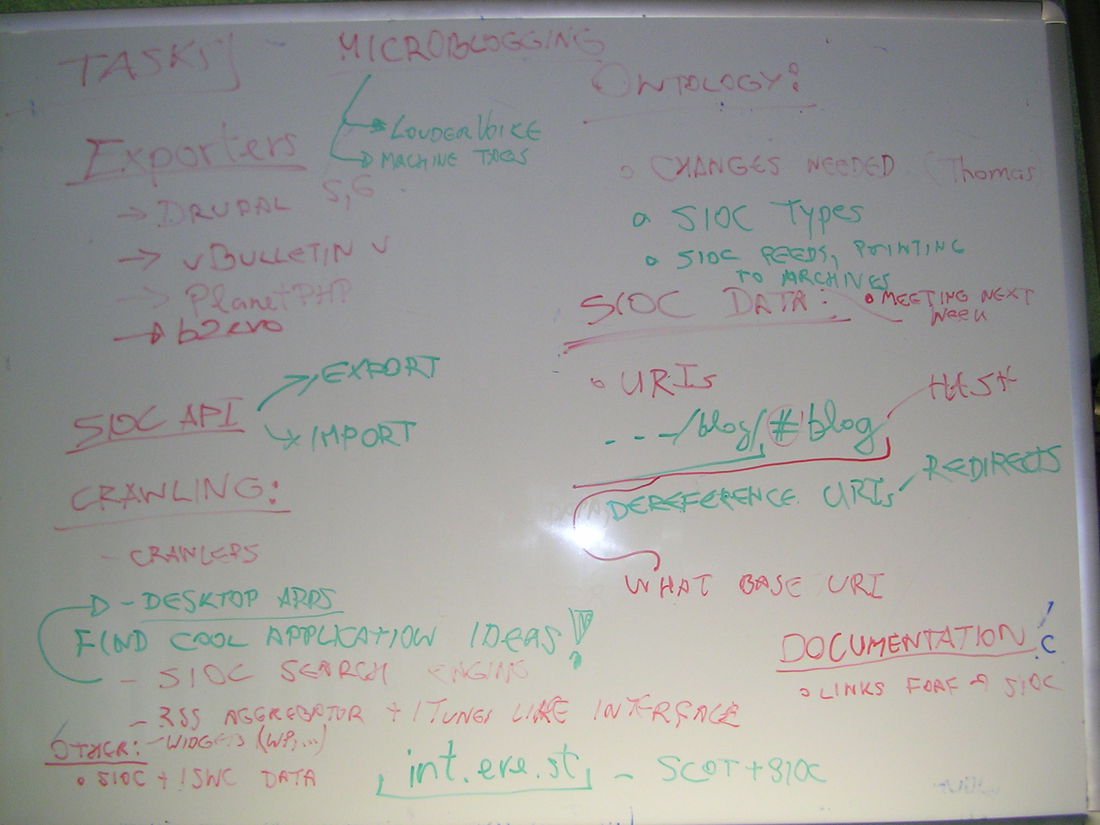 TASKS
MICROBLOGGING
LOUDERVOICE
MACHINE TAGS
Exporters
→ DRUPAL 5,6
→ vBULLETIN v
→ PlanetPHP
→ b2evo
SIOC API
→ EXPORT
→ IMPORT
CRAWLING:
- CRAWLERS
- DESKTOP APPS
FIND COOL APPLICATION IDEAS!
- SIOC SEARCH ENGINE
- RSS AGGREGATOR + ITUNES LIKE INTERFACE
OTHER: - WIDGETS (WP,...)
• SIOC + ISWC DATA
int.ere.st - SCOT + SIOC
ONTOLOGY:
• CHANGES NEEDED (Thomas
• SIOC TYPES
• SIOC FEEDS, POINTING
TO ARCHIVES
SIOC DATA: • MEETING NEXT
WEEK
• URIs
HASH
---/blog/#blog
DEREFERENCE URIs
REDIRECTS
WHAT BASE URI
DOCUMENTATION:
• LINKS FOAF → SIOC